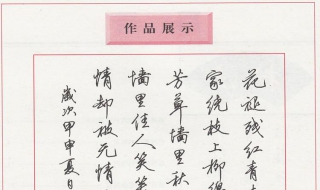 作品展示
花褪残红青
家绕枝上柳绵
芳草墙里秋
墙里佳人笑笑
情却被无情
歲次甲申夏日